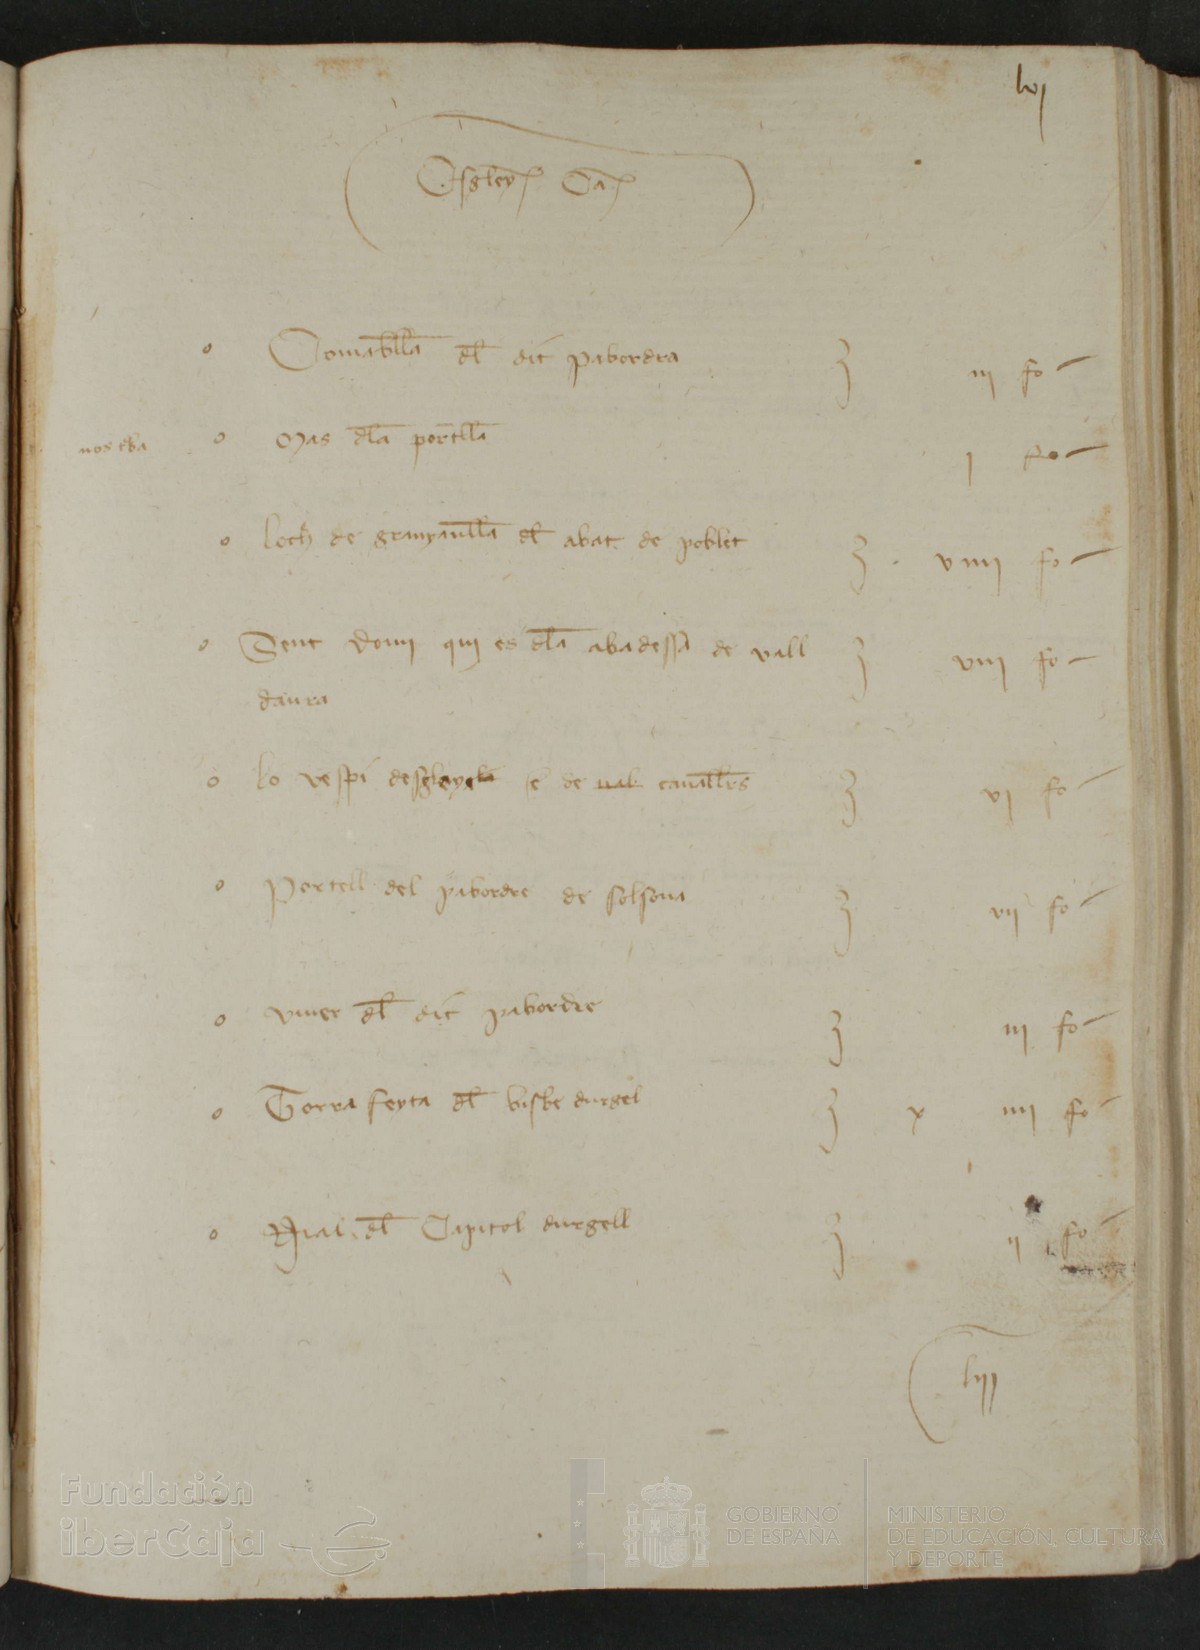 lvj
Esgley Ca
Comablla dl dit pabordra iij fo
nos tba Mas dla portlla j fo
loch de granyanlla dl abat de poblet viiij fo
Sent Domi qui es dla abadessa de vall viij fo
daura
lo vespi desglayola e de vall cavallrs vi fo
Portell del pabordre de solsona vij fo
viver dl dit pabordre iij fo
Torra feyta dl bisbe durgel x iiij fo
dl Capitol durgell ij fo
lvij
Fundación
iberCaja
GOBIERNO
DE ESPAÑA
MINISTERIO
DE EDUCACIÓN, CULTURA
Y DEPORTE